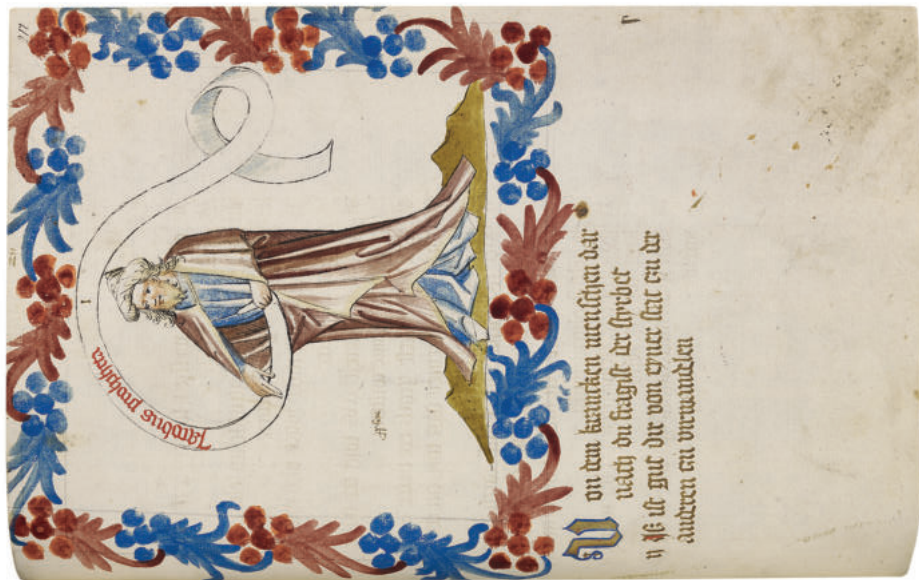 Jacobus propheta
1
Von dem krancken menschen dar
nach du fragist der styrbet
ij Es ist gut dir von eyner stat cɀu der
anderen cɀu vorwandlen